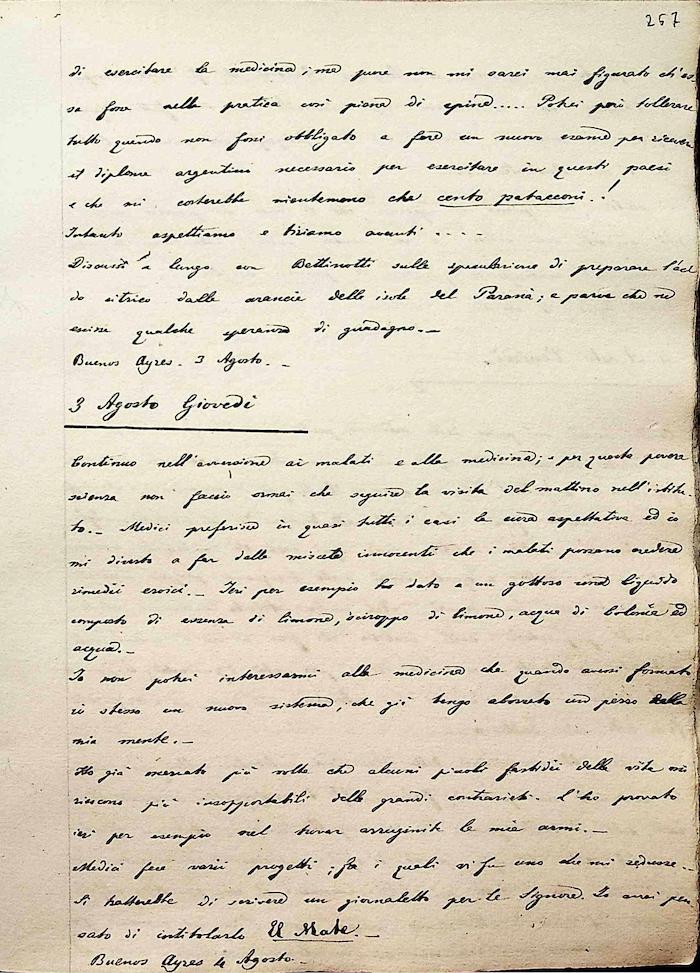 257
di esercitare la medicina; ma pure non mi sarei mai figurato ch'es
sa fosse nella pratica così piena di spine..... Potrei però tollerare
tutto quando non fossi obbligato a fare un nuovo esame per ricever
il diploma argentino necessario per esercitare in questi paesi
e che mi costerebbe nientemeno che cento patacconi..!
Intanto aspettiamo e tiriamo avanti....
Discussi a lungo con Bettinotti sulla speculazione di preparare l'aci
do citrico dalle arancie delle isole del Paranà; e parve che ne
escisse qualche speranza di guadagno._
Buenos Ayres. 3 Agosto._
3 Agosto Giovedì
Continuo nell'avversione ai malati e alla medicina; e per questa povera
scienza non faccio ormai che seguire la visita del mattino nell'istitu
to._ Medici preferisce in quasi tutti i casi la cura aspettativa ed io
mi diverto a far delle miscele innocenti che i malati possano credere
rimedii eroici._ Ieri per esempio ho dato a un gottoso un liquido
composto di essenza di limone, sciroppo di limone, acqua di Colonia ed
acqua._
Io non potrei interessarmi alla medicina che quando avessi formato
io stesso un nuovo sistema; che già tengo abozzato un pezzo nella
mia mente._
Ho già osservato più volte che alcuni piccoli fastidii della vita mi
riescono più insopportabili delle grandi contrarietà. L'ho provato
ieri per esempio nel trovar arruginite le mie armi._
Medici fece varii progetti; fra i quali vi fu uno che mi sedusse._
Si tratterebbe di scrivere un giornaletto per le Signore. Io avrei pen
sato di intitolarlo El Mate._
Buenos Ayres 4 Agosto._